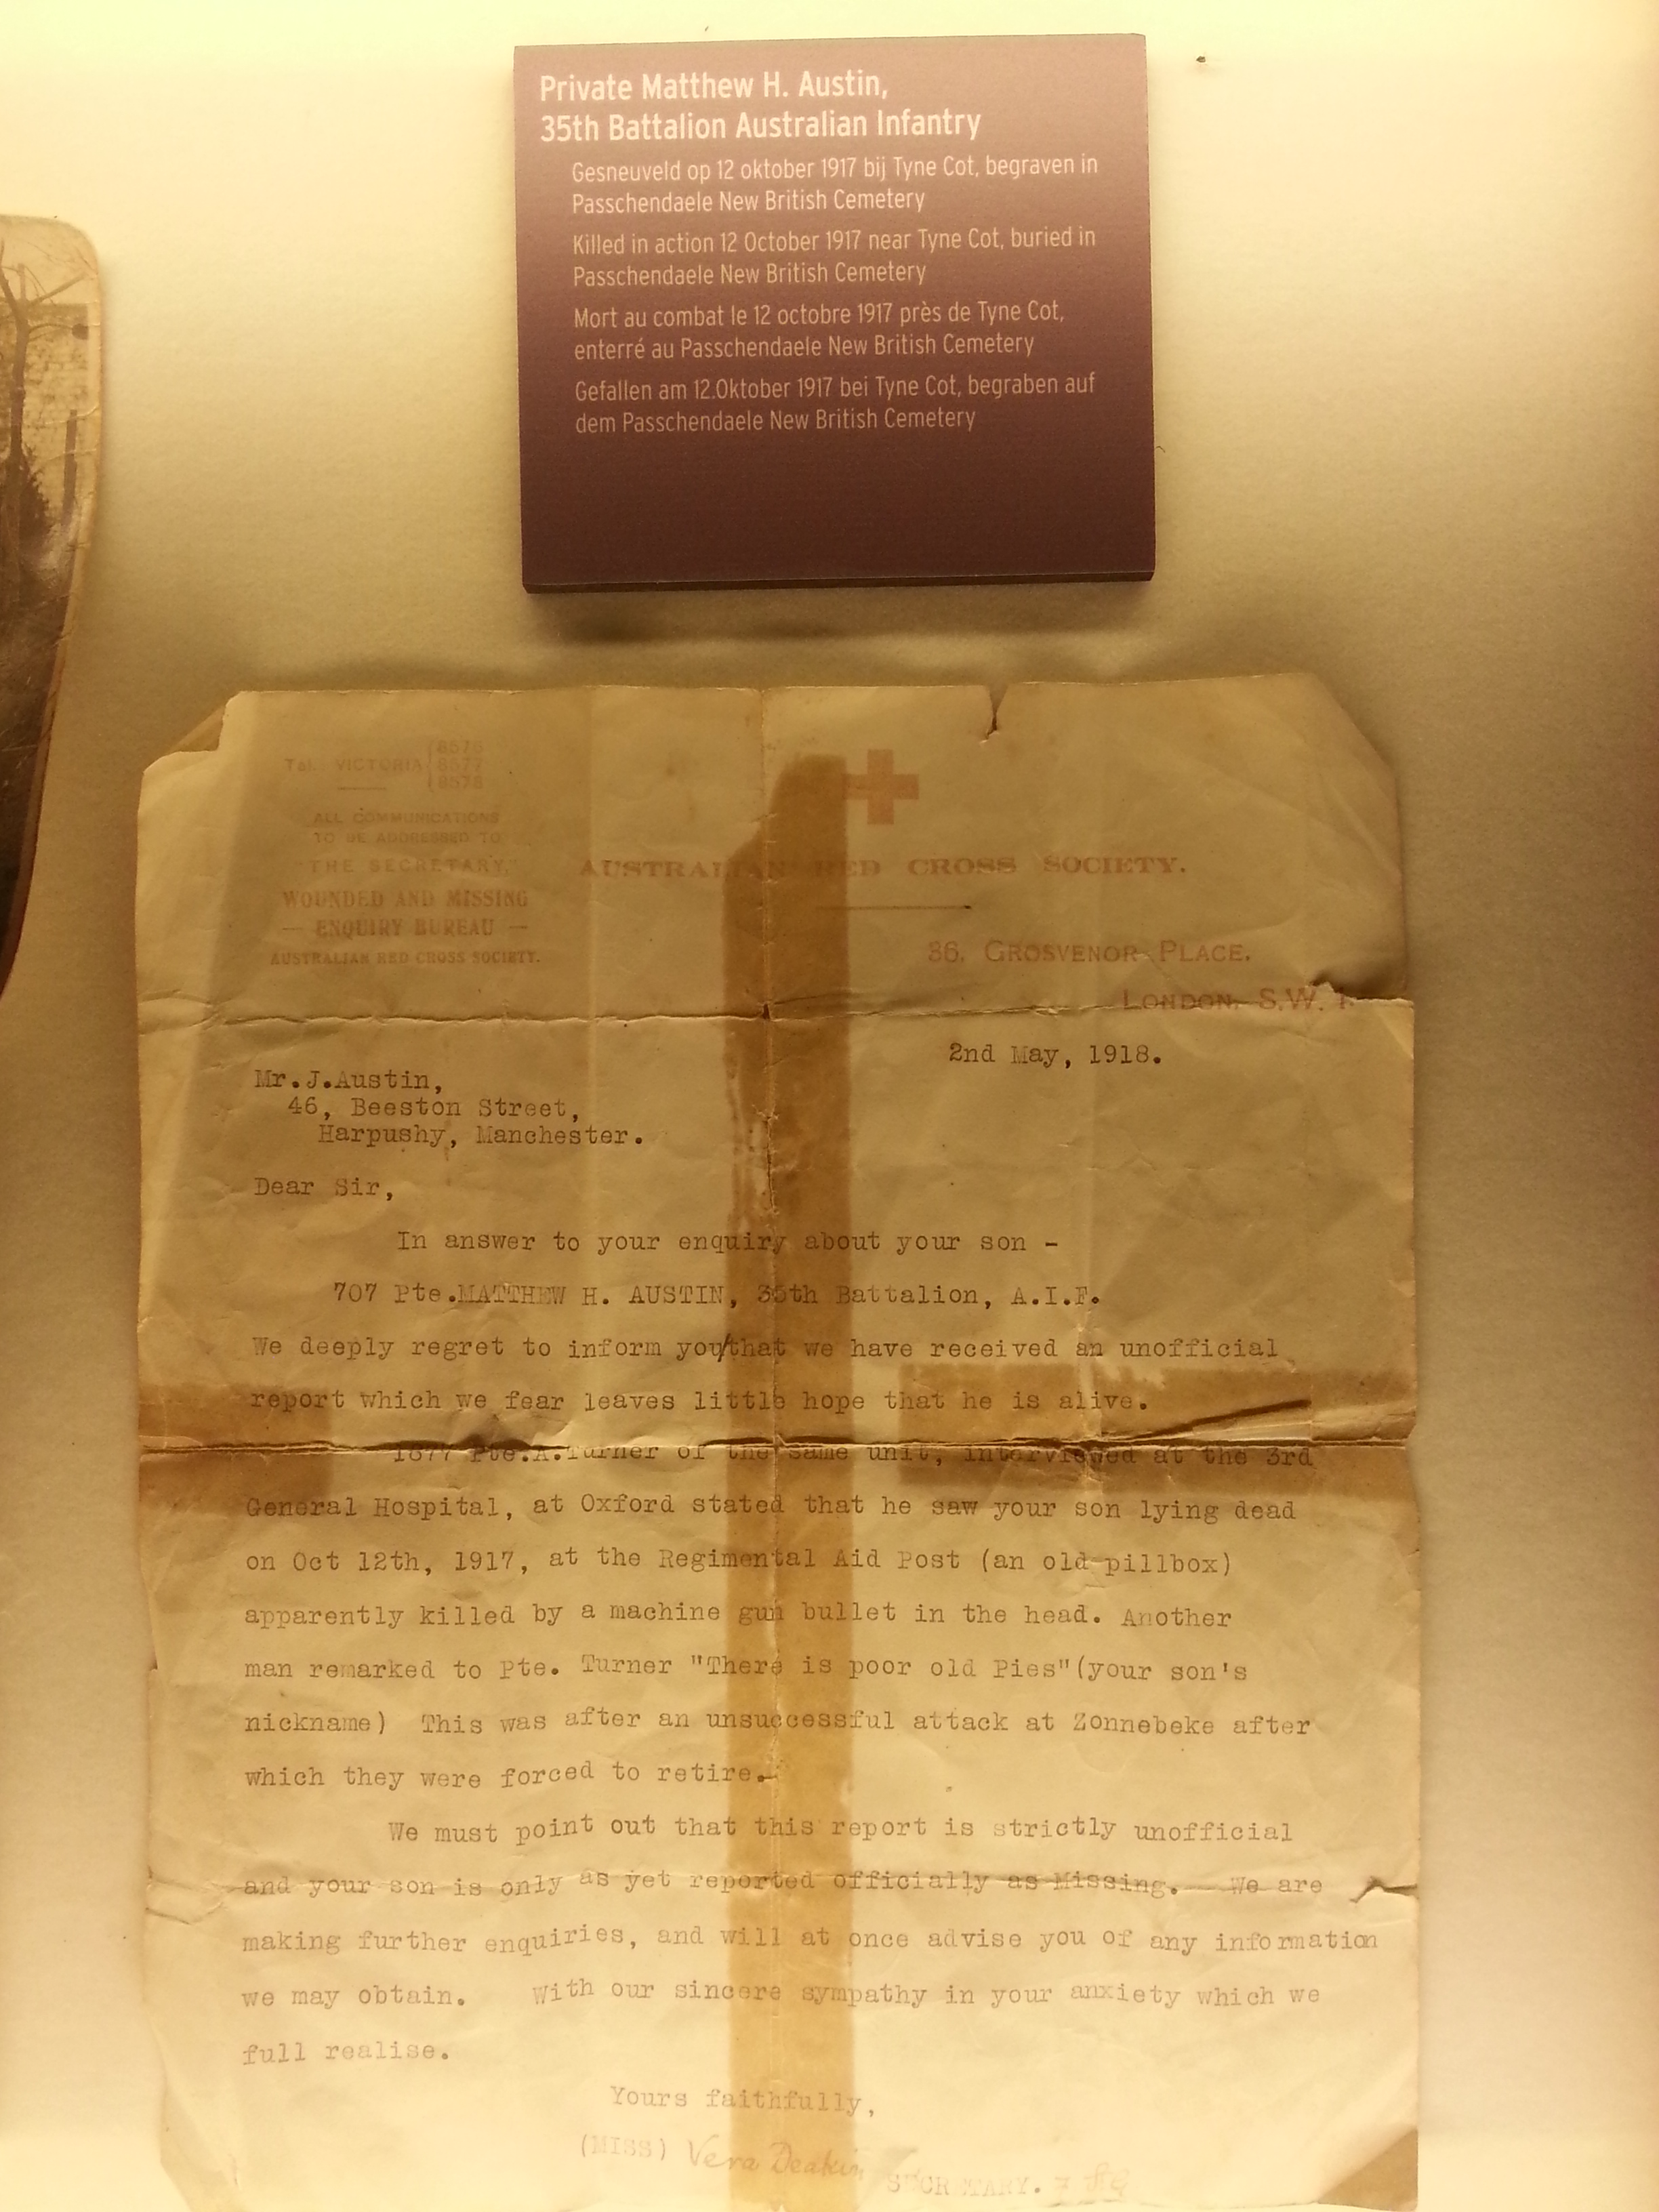 Private Matthew H. Austin,
35th Battalion Australian Infantry
Gesneuveld op 12 oktober 1917 bij Tyne Cot, begraven in
Passchendaele New British Cemetery
Killed in action 12 October 1917 near Tyne Cot, buried in
Passchendaele New British Cemetery
Mort au combat le 12 octobre 1917 près de Tyne Cot,
enterré au Passchendaele New British Cemetery
Gefallen am 12.Oktober 1917 bei Tyne Cot, begraben auf
dem Passchendaele New British Cemetery
8576
Tel. VICTORIA 8577
8578
ALL COMMUNICATIONS
TO BE ADDRESSED TO
"THE SECRETARY,"
WOUNDED AND MISSING
— ENQUIRY BUREAU —
AUSTRALIAN RED CROSS SOCIETY.
AUSTRALIAN RED CROSS SOCIETY.
36, GROSVENOR PLACE,
LONDON, S.W. 1.
2nd May, 1918.
Mr.J.Austin,
46, Beeston Street,
Harpushy, Manchester.
Dear Sir,
In answer to your enquiry about your son -
707 Pte.MATTHEW H. AUSTIN, 35th Battalion, A.I.F.
We deeply regret to inform you/that we have received an unofficial
report which we fear leaves little hope that he is alive.
1877 Pte.A.Turner of the same unit, interviewed at the 3rd
General Hospital, at Oxford stated that he saw your son lying dead
on Oct 12th, 1917, at the Regimental Aid Post (an old pillbox)
apparently killed by a machine gun bullet in the head. Another
man remarked to Pte. Turner "There is poor old Pies"(your son's
nickname) This was after an unsuccessful attack at Zonnebeke after
which they were forced to retire.
We must point out that this report is strictly unofficial
and your son is only as yet reported officially as Missing. We are
making further enquiries, and will at once advise you of any information
we may obtain. With our sincere sympathy in your anxiety which we
full realise.
Yours faithfully,
(MISS) Vera Deakin
SECRETARY.